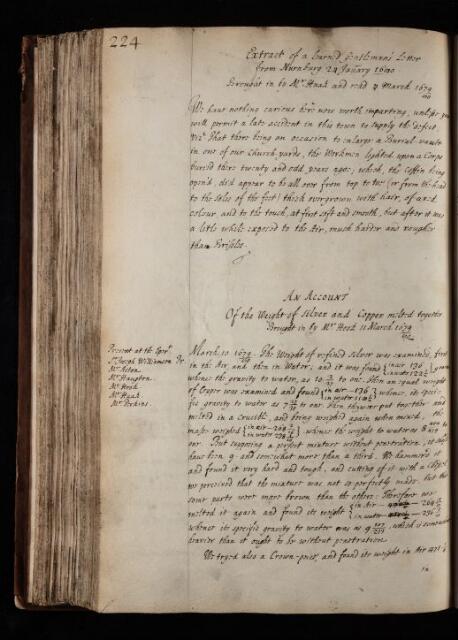 224
Extract of a learned Gentleman's Letter
from Nurnburg 24 January 1680
Brought in by Mr. Haak and read 4 March 1679/80
We have nothing curious here now worth imparting, unless you
will permit a late accident in this town to supply the defect,
Viz. That there being an occasion to enlarge a Buriall vault
in one of our Church-yards, the Workmen lighted upon a Corps
buried there twenty and odd years agoe; which, the Coffin being
open'd, did appear to be all over from top to toe (or from the head
to the soles of the feet) thick overgrown with hair, of a red
colour and to the touch, at first soft and smooth, but after it was
a litle while exposed to the Air, much harder and rougher
than Brisles.
AN ACCOUNT
Of the Weight of Silver and Copper melted together
Brought in by Mr. Hook 11 March 1679/80
Present at the Expr.
Sr. Joseph Williamson Pr.
Mr. Aston
Mr. Haughton
Mr. Hook
Mr. Haak
Mr. Perkins.
March 10 1679/80. The Weight of refined Silver was examined, first
in the Air and then in Water; and it was found in air 136
whence the gravity to water, as 10 to one. Then an equal weight
of Copper was examined and found in air 136 whence, its speci-
fic gravity to water as 7 to one. then they were put together and
melted in a Crucible, and being weighed again when mixed, the
masse weighed in air in water 238 whence the weight to water as 8 to
one. But supposing a perfect mixture without penetration, it should
have been 9. and somewhat more than a third. We hammer'd it
and found it very hard and tough, and cutting of it with a
we perceived that the mixture was not so perfectly made, but that
some parts were more brown than the others: Therefore we
melted it again and found its weight in Air 264
in water 236
whence its specific gravity to water was as 9 which is somewhat
heavier than it ought to be without penetration
We tryed also a Crown-piece, and found its weight in Air